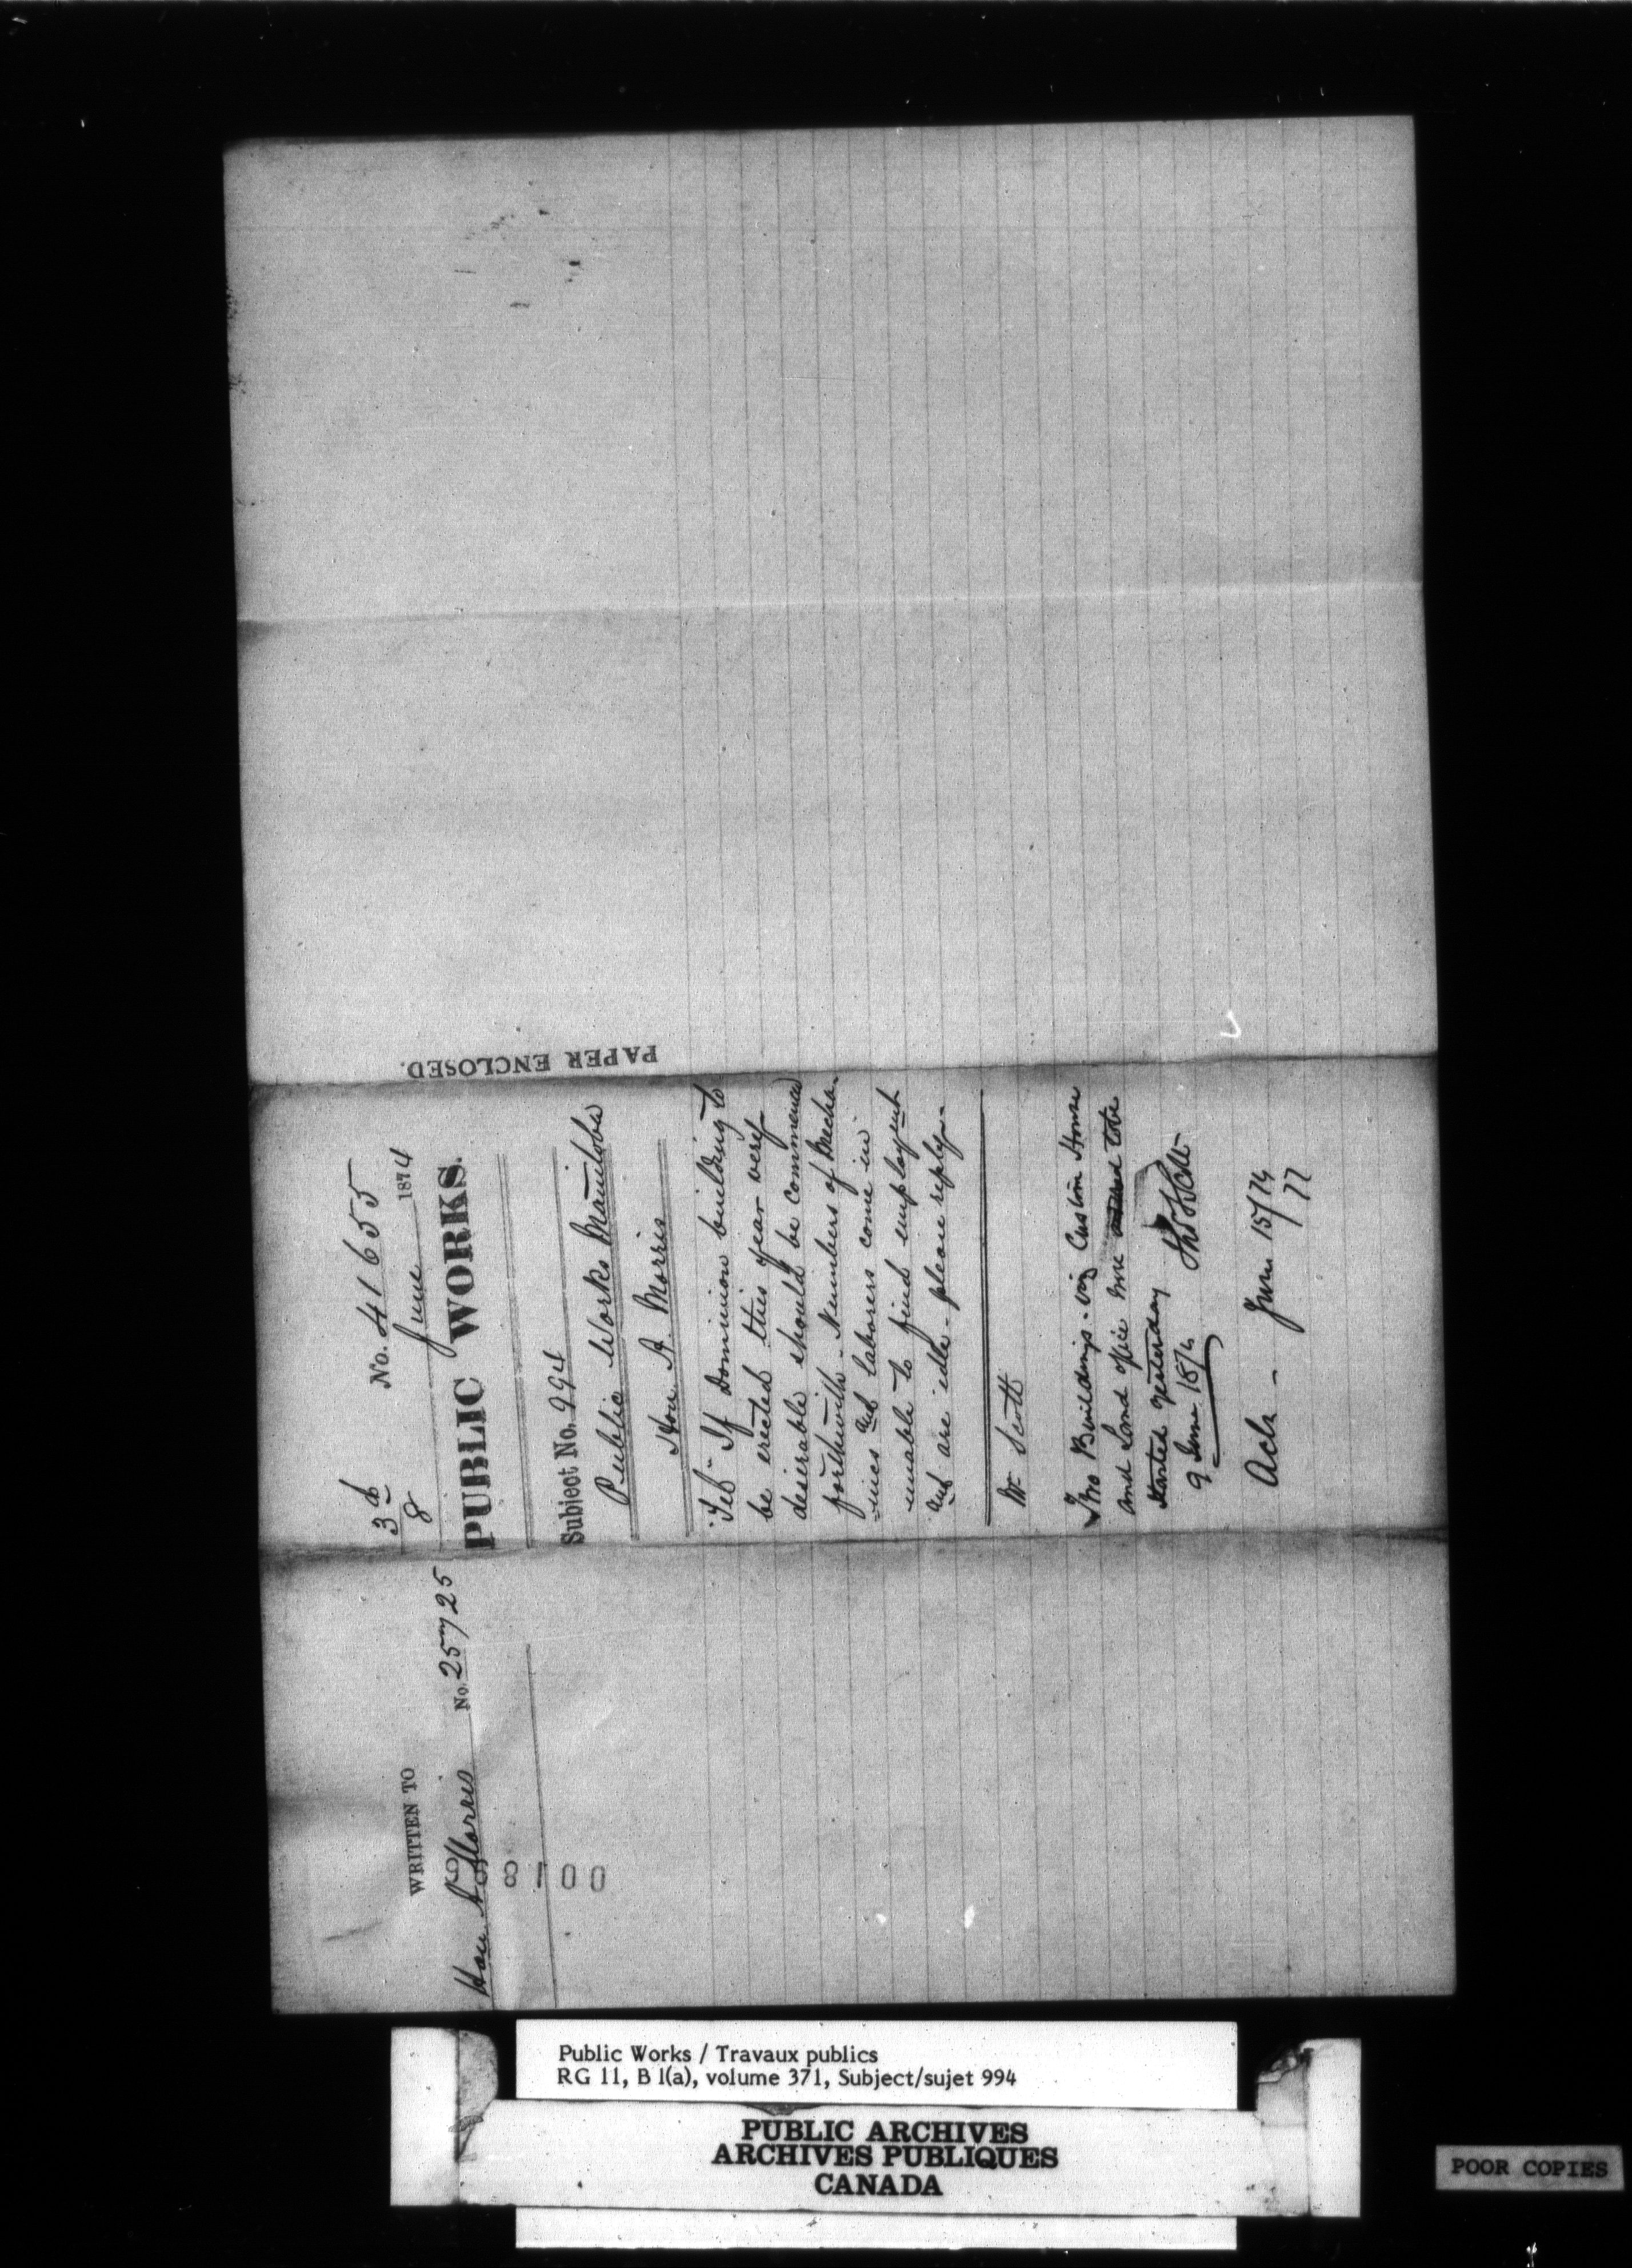 WRITTEN TO
Hon. A. Morris No. 25725
00187
3 d
8
No. 41655
June 1874
PUBLIC WORKS.
Subject No. 994
Public Works Manitoba
Hon. A. Morris
"Tel" If Dominion building to
be erected this year very
desirable should be commenced
forthwith. Numbers of Mecha-
-nics and laborers come in
unable to find employment
and are idle - please reply.
Mr Scott
Two Buildings. viz Custom House
and Land office were to be
started yesterday
9 June 1874 Thos S Scott
Ack - June 15/74
77
PAPER ENCLOSED.
Public Works / Travaux publics
RG 11, B 1(a), volume 371, Subject/sujet 994
PUBLIC ARCHIVES
ARCHIVES PUBLIQUES
CANADA
POOR COPIES